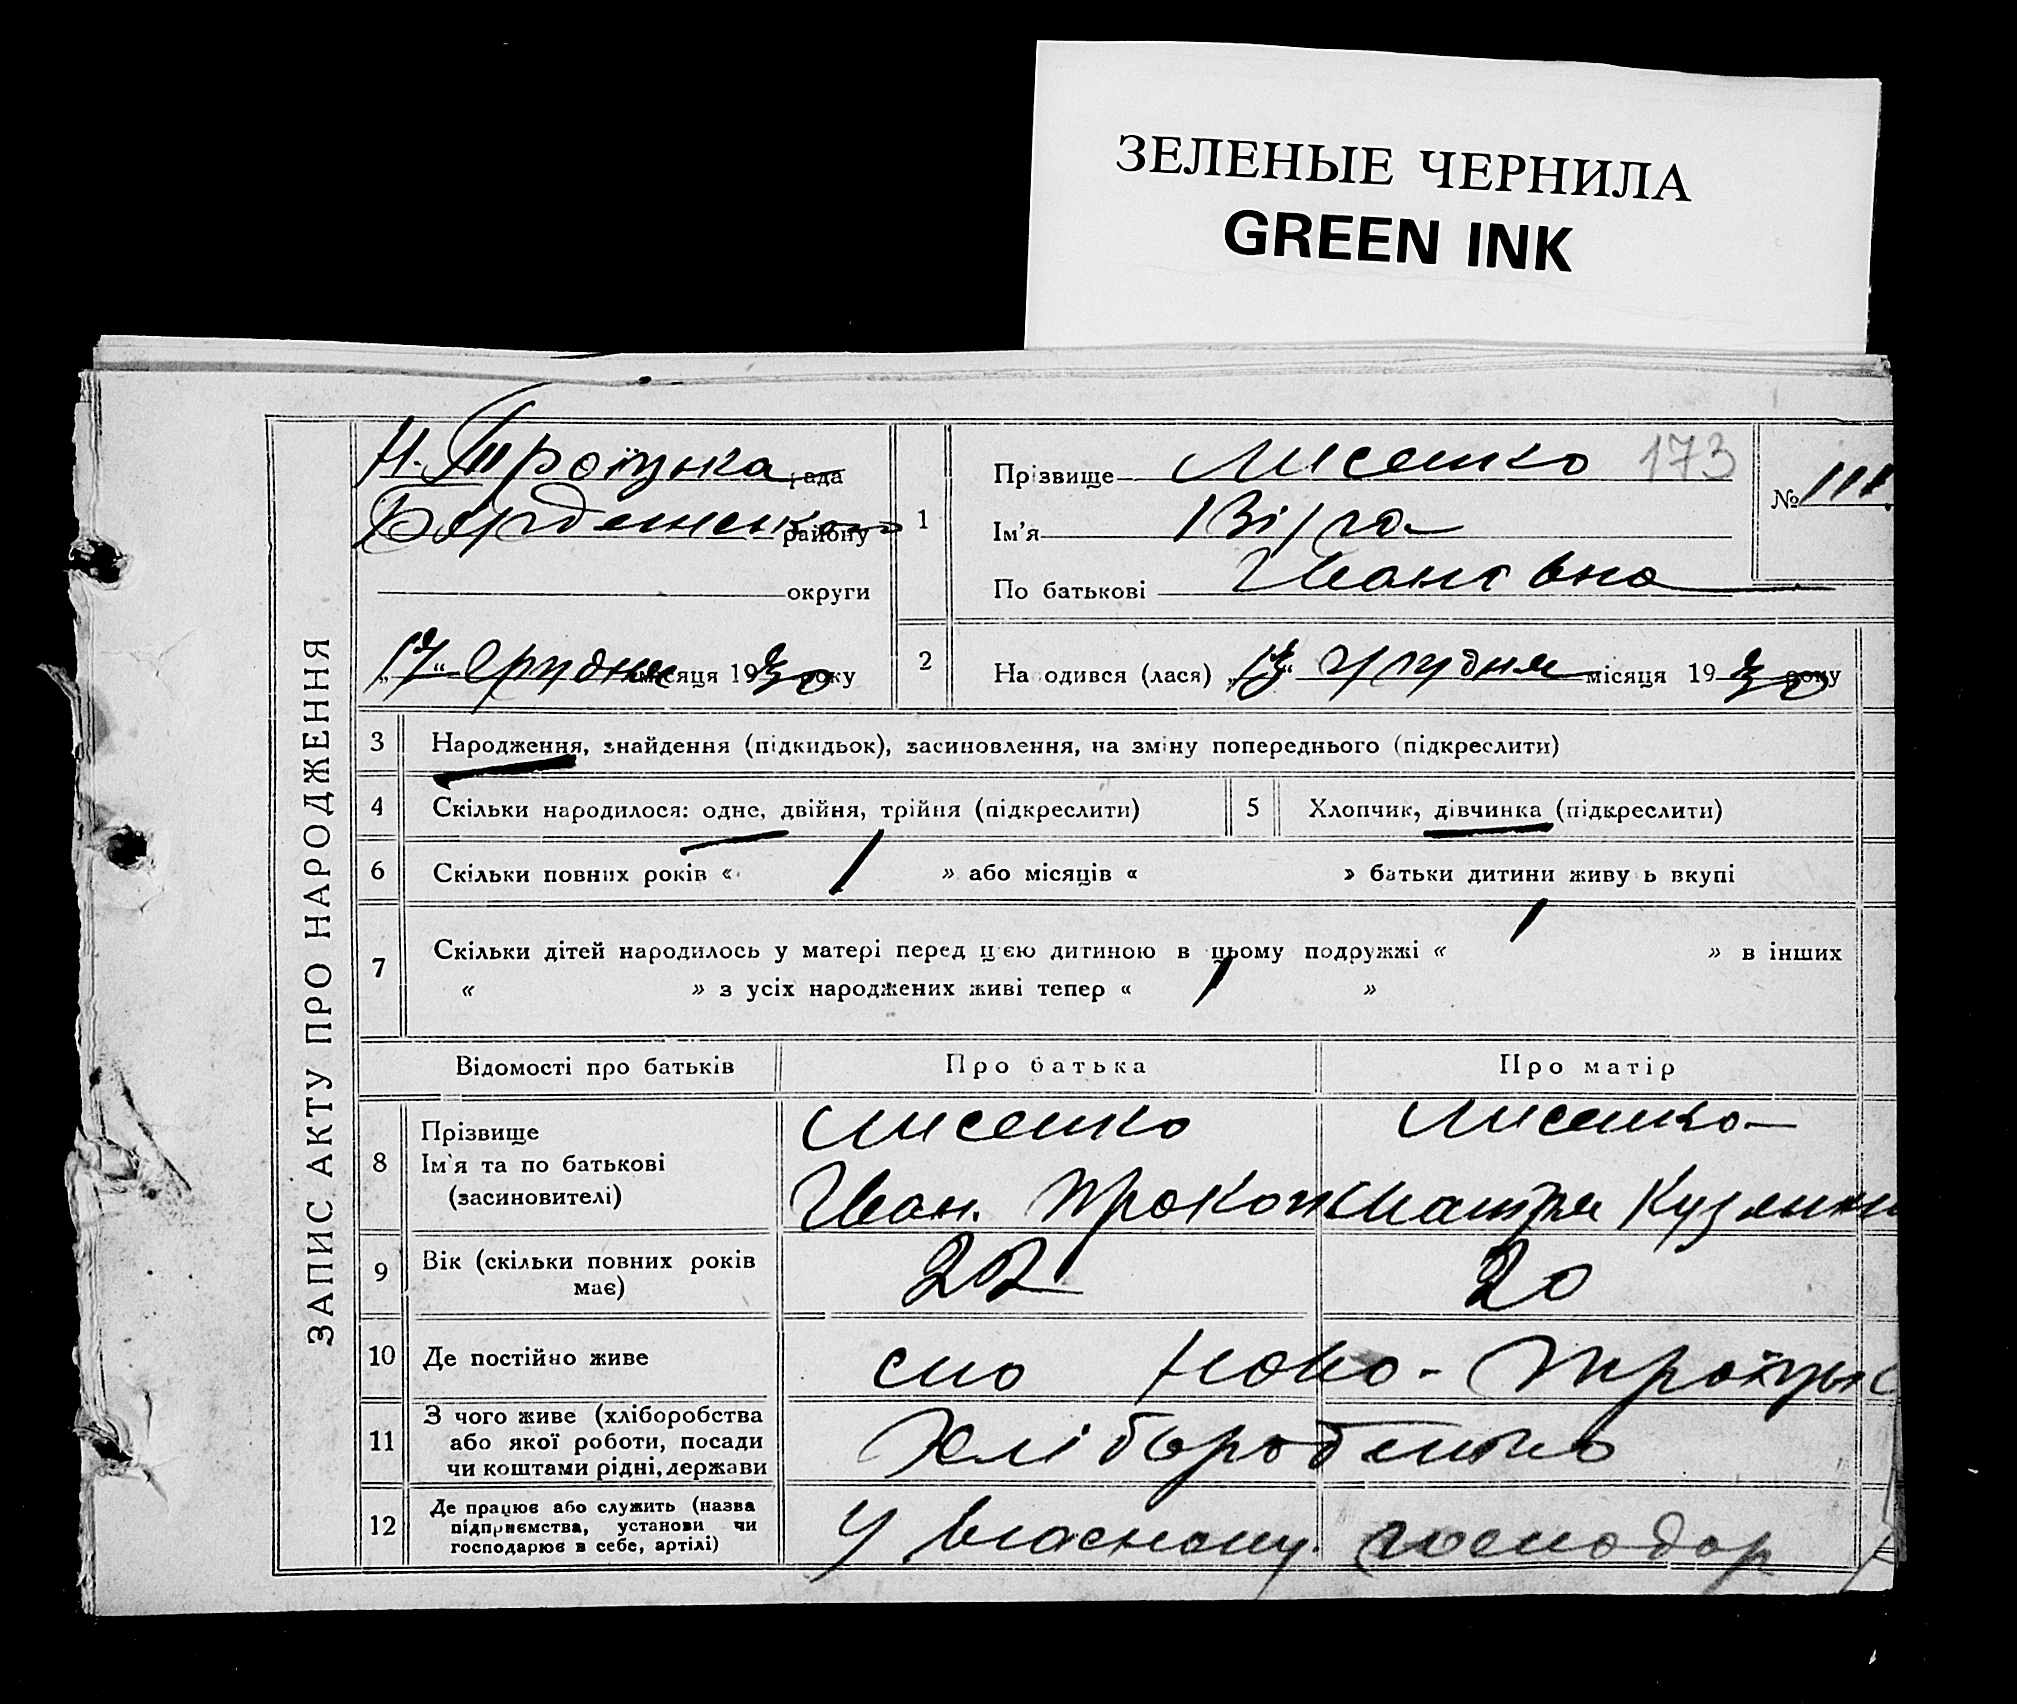 ЗЕЛЕНЫЕ ЧЕРНИЛА
GREEN INK
ЗАПИС АКТУ ПРО НАРОДЖЕННЯ
Н. Троїцка рада
району
округи
„17“ грудня місяця 1930 року
1
Прізвище Лисенко 173
Ім'я Віра
По батькові Іванівна
№ 111
2
На одився (лася) „13“ грудня місяця 1930 року
3 Народження, знайдення (підкидьок), засиновлення, на зміну попереднього (підкреслити)
4 Скільки народилося: одне, двійня, трійня (підкреслити)
5 Хлопчик, дівчинка (підкреслити)
6 Скільки повних років « 1 » або місяців « » батьки дитини живу ь вкупі
7 Скільки дітей народилось у матері перед цією дитиною в цьому подружжі « 1 » в інших
« » з усіх народжених живі тепер « 1 »
Відомості про батьків Про батька Про матір
8 Прізвище
Ім'я та по батькові
(засиновителі)
Лисенко
Іван. Прокоп
Лисенко
9 Вік (скільки повних років
має)
22 20
10 Де постійно живе
село Ново-Троїцьк
11 З чого живе (хліборобства
або якої роботи, посади
чи коштами рідні, держави
Хліборобство
12 Де працює або служить (назва
підприємства, установи чи
господарює в себе, артілі)
У власному господар